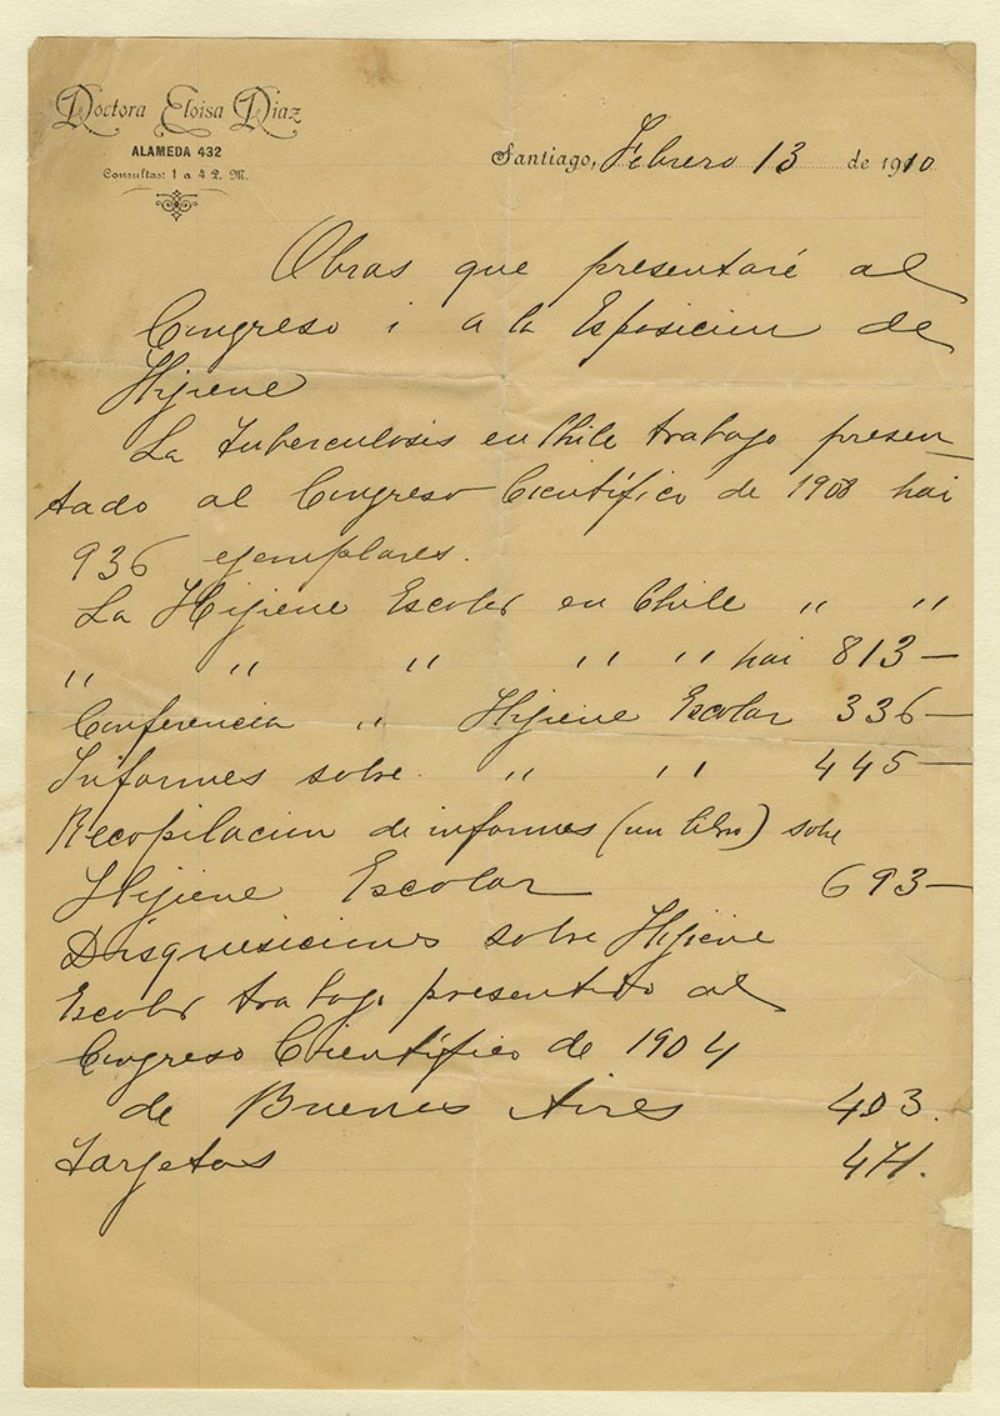 Doctora Eloisa Diaz
ALAMEDA 432
Consultas: 1 a 4 P. M.
Santiago, Febrero 13 de 1910
Obras que presentaré al
Congreso i a la Esposicion de
Hijiene
La Tuberculosis en Chile trabajo presen
tado al Congreso Científico de 1908 hai
936 ejemplares.
La Hijiene Escolar en Chile " "
" " " " " hai 813—
Conferencia " Hijiene Escolar 336—
Informes sobre " " 445—
Recopilacion de informes (un libro) sobre
Hijiene Escolar 693—
Disquisiciones sobre Hijiene
Escolar trabajo presentado al
Congreso Científico de 1904
de Buenos Aires 403.
Tarjetas